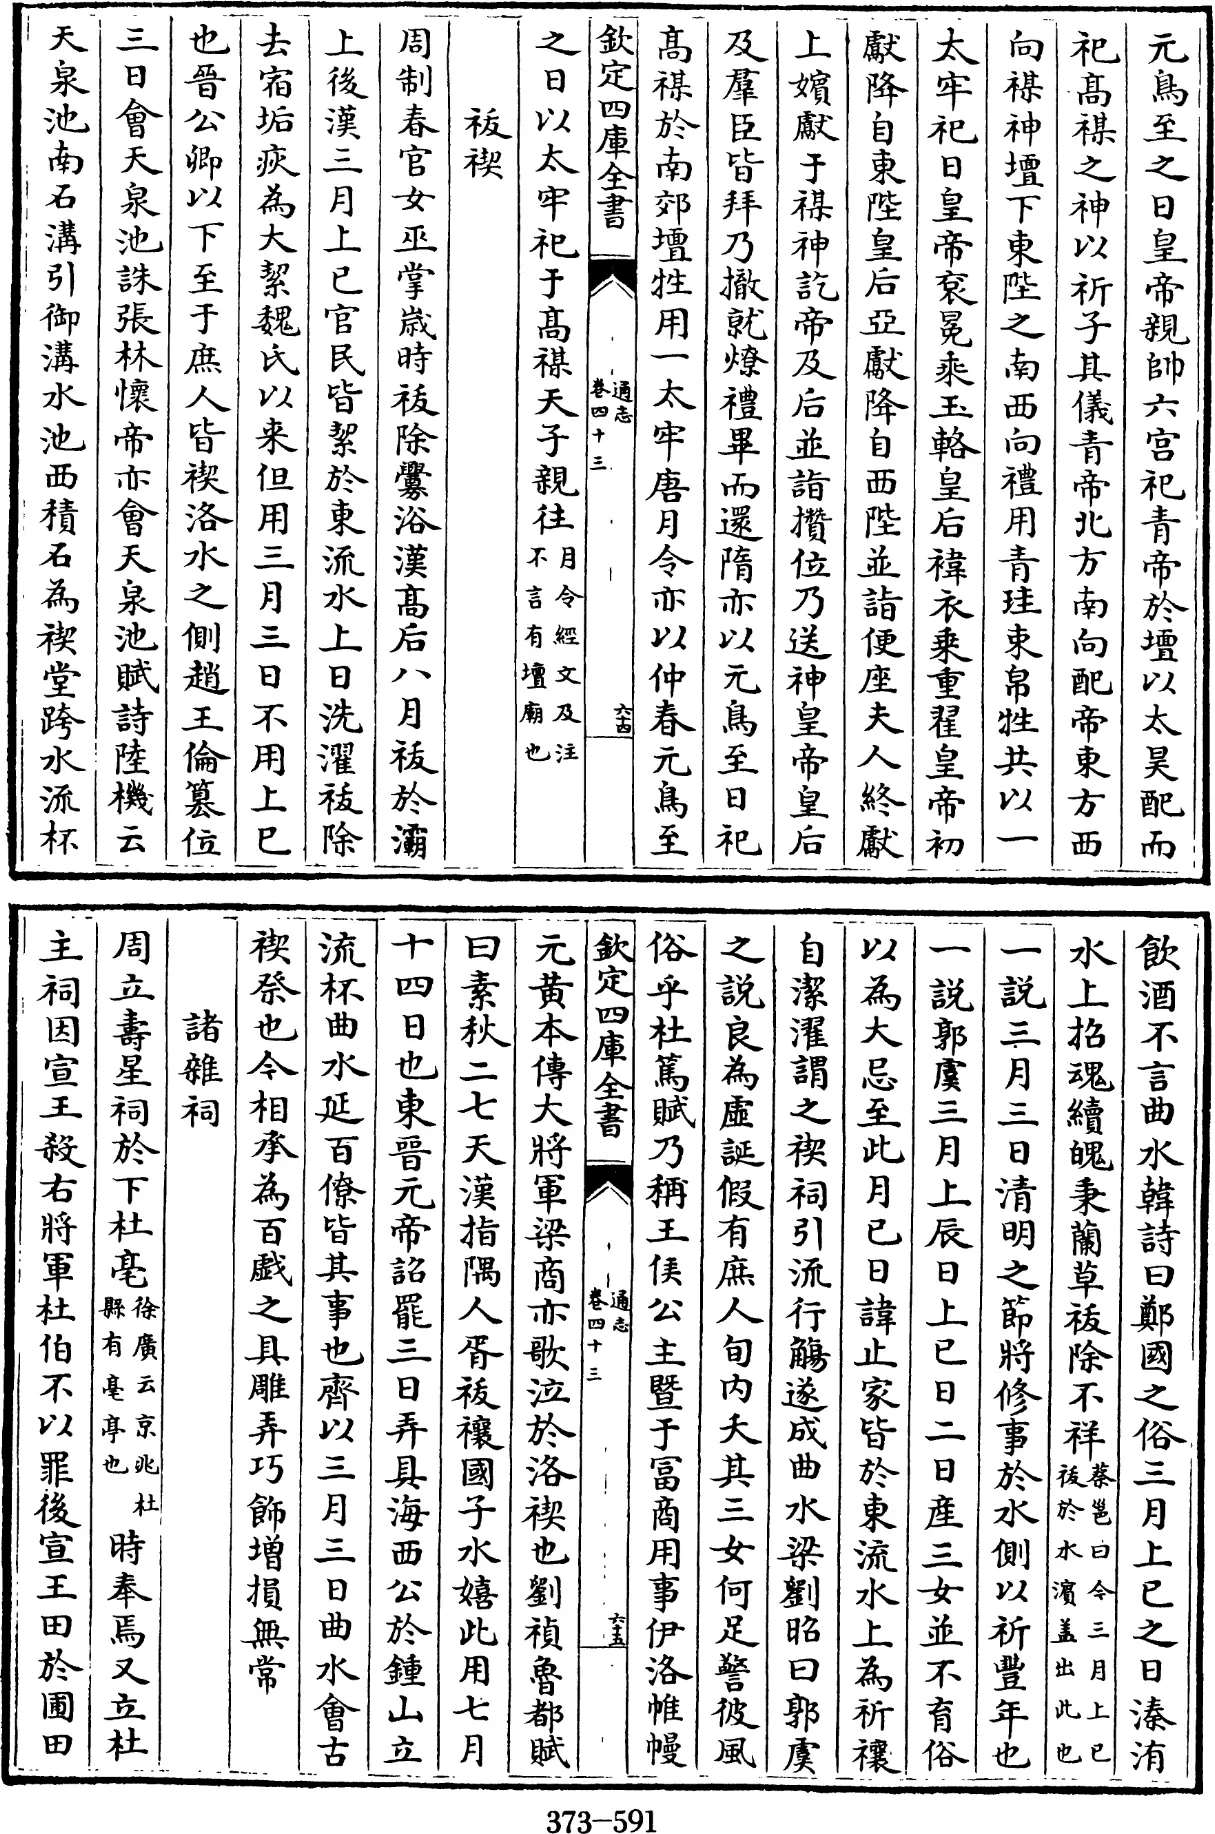 元鳥至之日皇帝親帥六宫祀青帝於壇以太昊配而
祀髙禖之神以祈子其儀青帝北方南向配帝東方西
向禖神壇下東陛之南西向禮用青珪束帛牲共以一
太牢祀日皇帝衮冕乘玉輅皇后褘衣乗重翟皇帝初
獻降自東陛皇后亞獻降自西陛並詣便座夫人終獻
上嬪獻于禖神訖帝及后並詣攢位乃送神皇帝皇后
及羣臣皆拜乃撤就燎禮畢而還隋亦以元鳥至日祀
髙禖於南郊壇牲用一太牢唐月令亦以仲春元鳥至
欽定四庫全書
通志
卷四十三
六十四
之日以太牢祀于髙禖天子親往月令經文及注
不言有壇廟也
祓禊
周制春官女巫掌嵗時祓除釁浴漢髙后八月祓於灞
上後漢三月上巳官民皆絜於東流水上日洗濯祓除
去宿垢疢為大絜魏氏以来但用三月三日不用上巳
也晉公卿以下至于庶人皆禊洛水之側趙王倫簒位
三日會天泉池誅張林懷帝亦會天泉池賦詩陸機云
天泉池南石溝引御溝水池西積石為禊堂跨水流杯
飲酒不言曲水韓詩曰鄭國之俗三月上巳之日溱洧
水上招魂續魄秉蘭草祓除不祥蔡邕曰今三月上巳
祓於水濵葢出此也
一説三月三日清明之節將修事於水側以祈豐年也
一説郭虞三月上辰日上巳日二日産三女並不育俗
以為大忌至此月巳日諱止家皆於東流水上為祈禳
自潔濯謂之禊祠引流行觴遂成曲水梁劉昭曰郭虞
之説良為虚誕假有庶人旬内夭其三女何足警彼風
俗乎杜篤賦乃稱王侯公主暨于富商用事伊洛帷幔
欽定四庫全書
通志
卷四十三
六十五
元黄本傳大將軍梁商亦歌泣於洛禊也劉禎魯都賦
曰素秋二七天漢指隅人胥祓禳國子水嬉此用七月
十四日也東晉元帝詔罷三日弄具海西公於鍾山立
流杯曲水延百僚皆其事也齊以三月三日曲水會古
禊祭也今相承為百戲之具雕弄巧飾增損無常
諸雜祠
周立壽星祠於下杜亳徐廣云京兆杜
縣有亳亭也時奉焉又立杜
主祠因宣王殺右將軍杜伯不以罪後宣王田於圃田
373-591